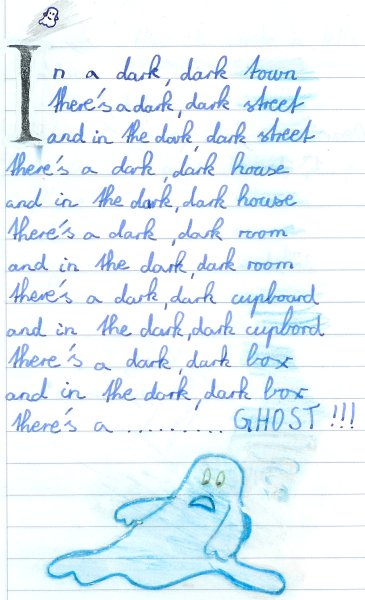 In a dark, dark town
there's a dark, dark street
and in the dark, dark street
there's a dark, dark house
and in the dark, dark house
there's a dark, dark room
and in the dark, dark room
there's a dark, dark cupboard
and in the dark, dark cupbord
there's a dark, dark box
and in the dark, dark box
there's a .......... GHOST !!!